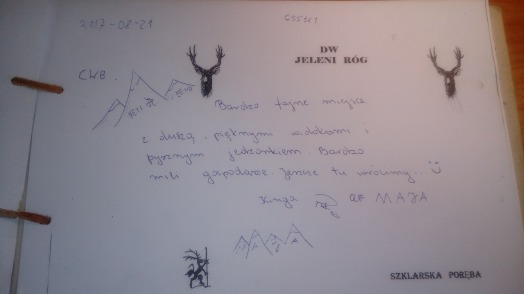 2017-08-21
DW
JELENI RÓG
CWB.
Bardzo fajne miejsce
z duszą, pięknymi widokami i
pysznym jedzonkiem. Bardzo
mili gospodarze. Jeszcze tu wrócimy...
Kinga
MAJA
SZKLARSKA PORĘBA